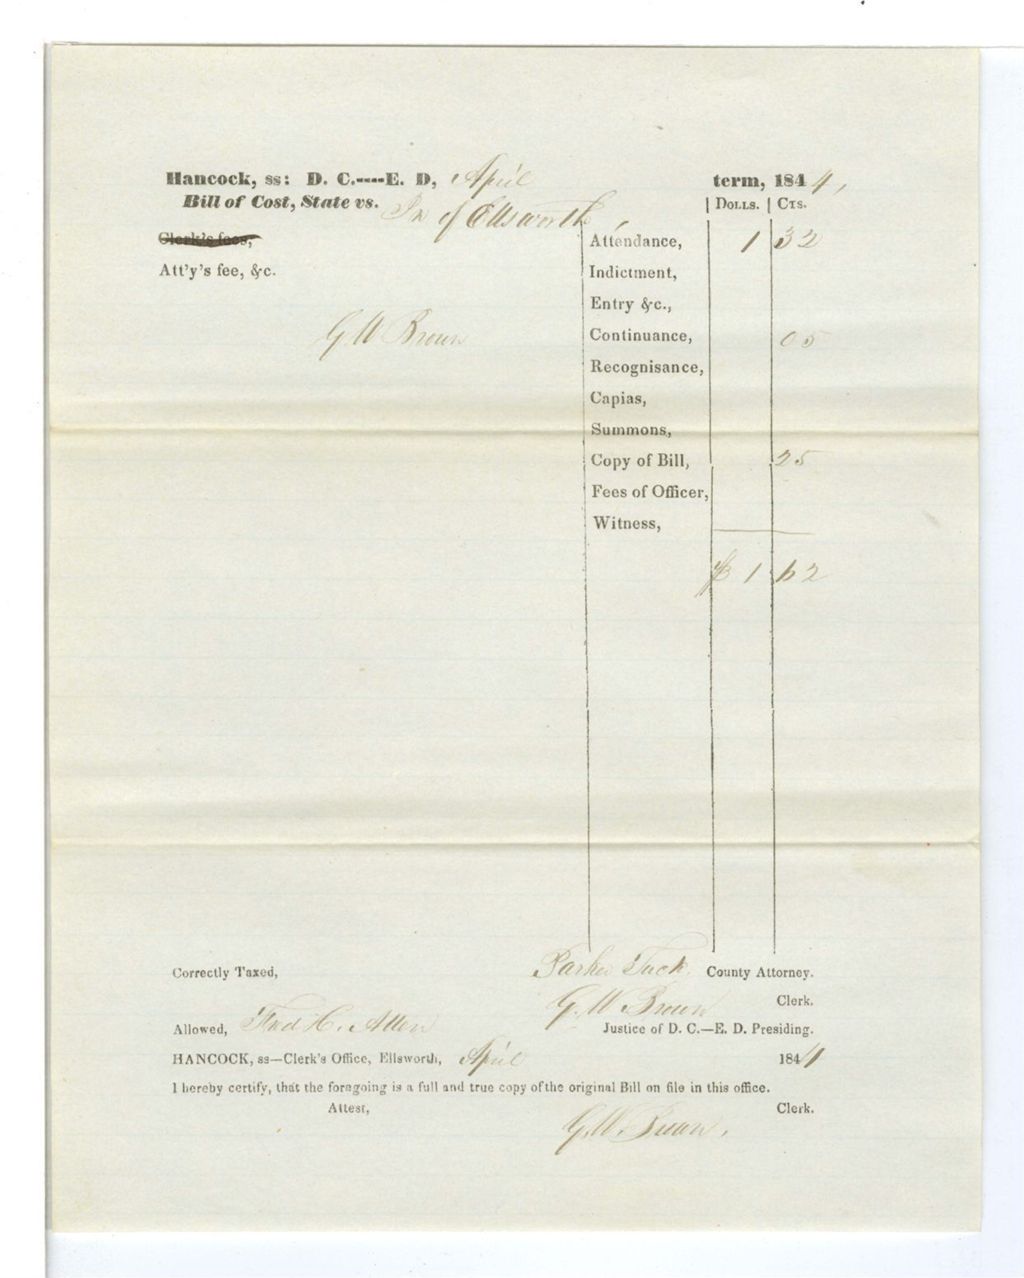 Hancock, ss: D. C.----E. D, April term, 1844,
Bill of Cost, State vs. In of Ellsworth, | DOLLS. | CTS.
Clerk's fees,
Attendance, 1 32
Att'y's fee, &c.
Indictment,
Entry &c.,
G W Brown
Continuance, 05
Recognisance,
Capias,
Summons,
Copy of Bill, 25
Fees of Officer,
Witness,
$ 1 62
Correctly Taxed, Parker Tuck County Attorney.
G. W. Brown Clerk.
Allowed, Fred H. Allen Justice of D. C.—E. D. Presiding.
HANCOCK, ss—Clerk's Office, Ellsworth, April 1844
I hereby certify, that the foregoing is a full and true copy of the original Bill on file in this office.
Attest, Clerk.
G. W. Brown,